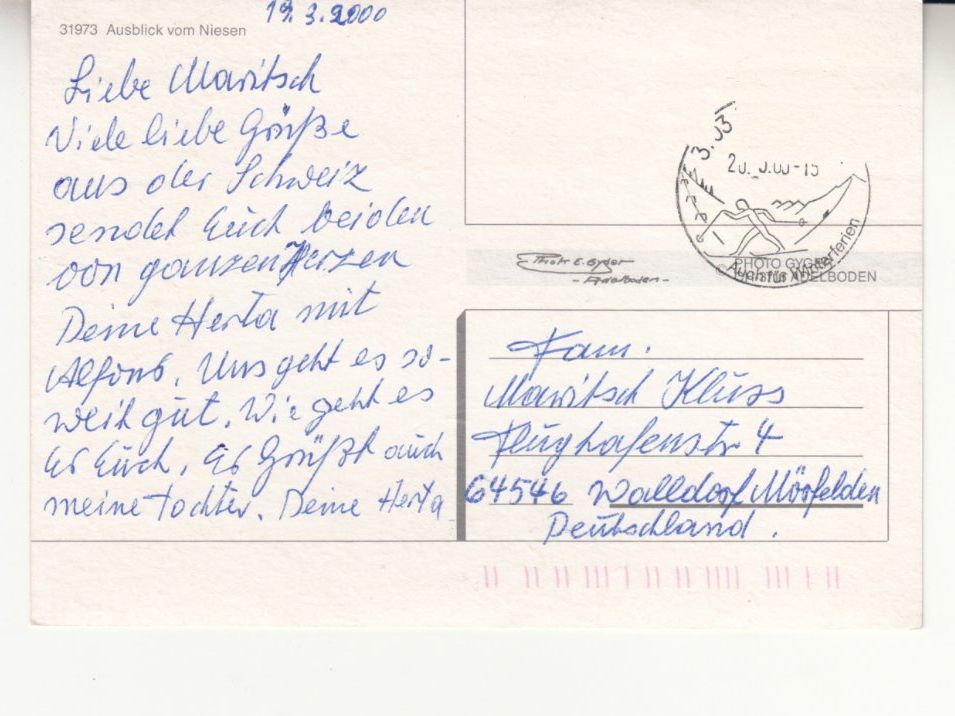 19.3.2000
31973 Ausblick vom Niesen
Liebe Maritsch
Viele liebe Grüße
aus der Schweiz
sendet Euch beiden
von ganzen Herzen
Deine Herta mit
Alfons. Uns geht es so-
weit gut. Wie geht es
Es Euch. Es Grüßt auch
meine Tochter. Deine Herta
Auch für Winterferien
Photo E. Gyger
- Adelboden -
PHOTO GYGER
ADELBODEN
Fam.
Maritsch Kluss
Flughafenstr 4
64546 Walldorf Mörfelden
Deutschland.